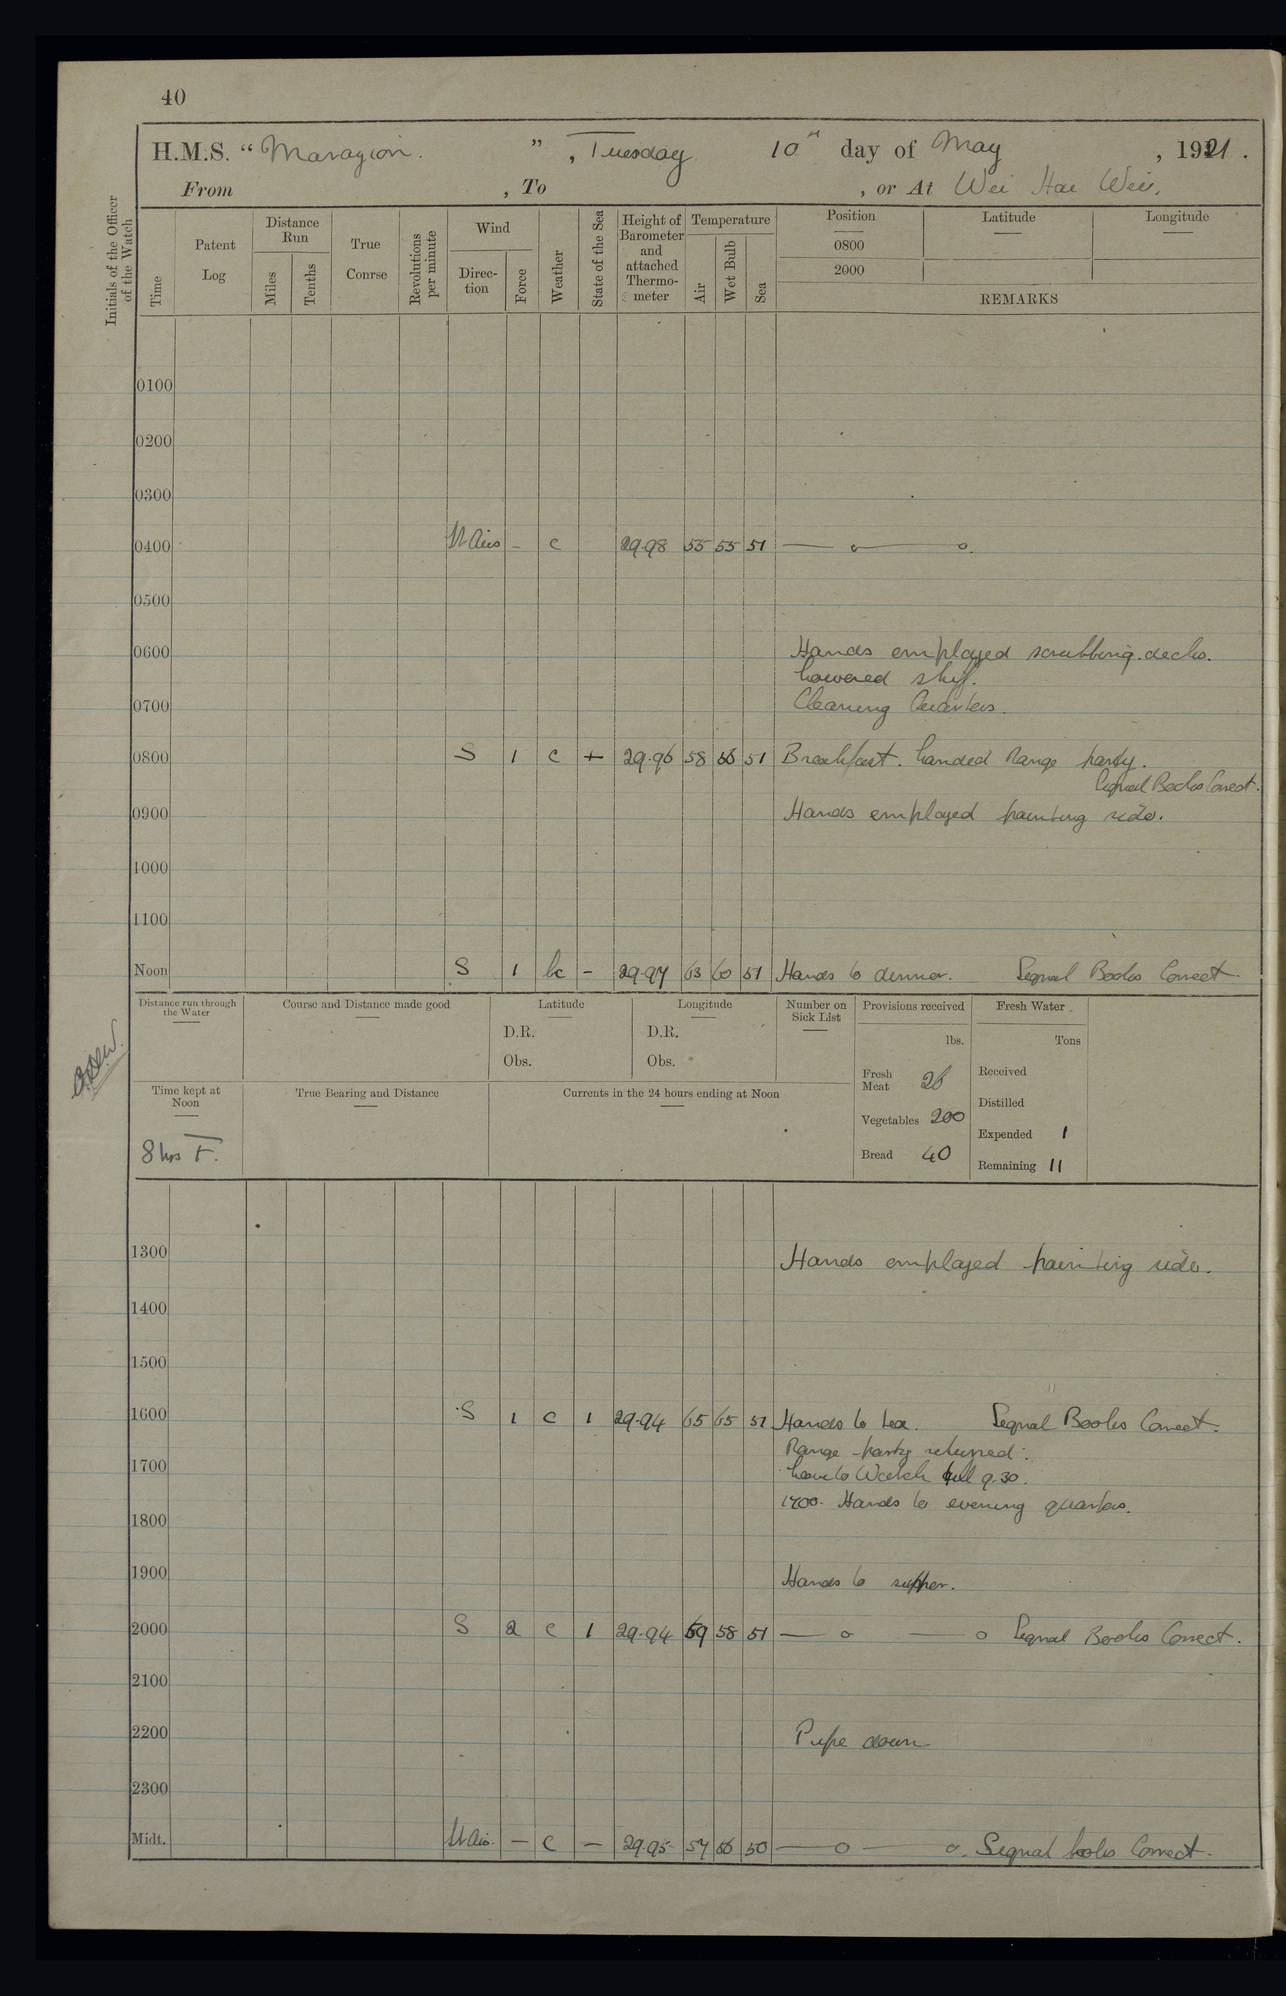 40
H.M.S. “ Marazion. ” , Tuesday 10th day of May , 1921 .
From , To , or At Wei Hai Wei.
Initials of the Officer of the Watch
Time
Patent Log
Distance Run
Miles
Tenths
True Course
Revolutions per minute
Wind
Direc-tion
Force
Weather
State of the Sea
Height of Barometer and attached Thermo-meter
Temperature
Air
Wet Bulb
Sea
Position Latitude Longitude
0800
2000
REMARKS
0100
0200
0300
0400 Lt Airs – c 29.98 55 55 51 —o—o.
0500
0600 Hands employed scrubbing decks.
Lowered skiff.
0700 Cleaning Quarters.
0800 S 1 c + 29.96 58 56 51 Breakfast. Landed Range party.
Signal Books Correct.
0900 Hands employed painting side.
1000
1100
Noon S 1 bc – 29.97 63 60 51 Hands to dinner. Signal Books Correct.
Distance run through the Water
Course and Distance made good
Latitude
D.R.
Obs.
Longitude
D.R.
Obs.
Number on Sick List
Provisions received
lbs.
Fresh Meat 26
Vegetables 200
Bread 40
Fresh Water
Tons
Received
Distilled
Expended 1
Remaining 11
Time kept at Noon
8 hrs F.
True Bearing and Distance
Currents in the 24 hours ending at Noon
1300 Hands employed painting side.
1400
1500
1600 S 1 c 1 29.94 65 65 51 Hands to tea. Signal Books Correct.
Range party returned.
1700 Leave to Watch till 9.30.
1700. Hands to evening quarters.
1800
1900 Hands to supper.
2000 S 2 c 1 29.94 59 58 51 — o — o Signal Books Correct.
2100
2200 Pipe down
2300
Midt. Lt Airs. – c – 29.95 57 56 50 — o — o. Signal books Correct.